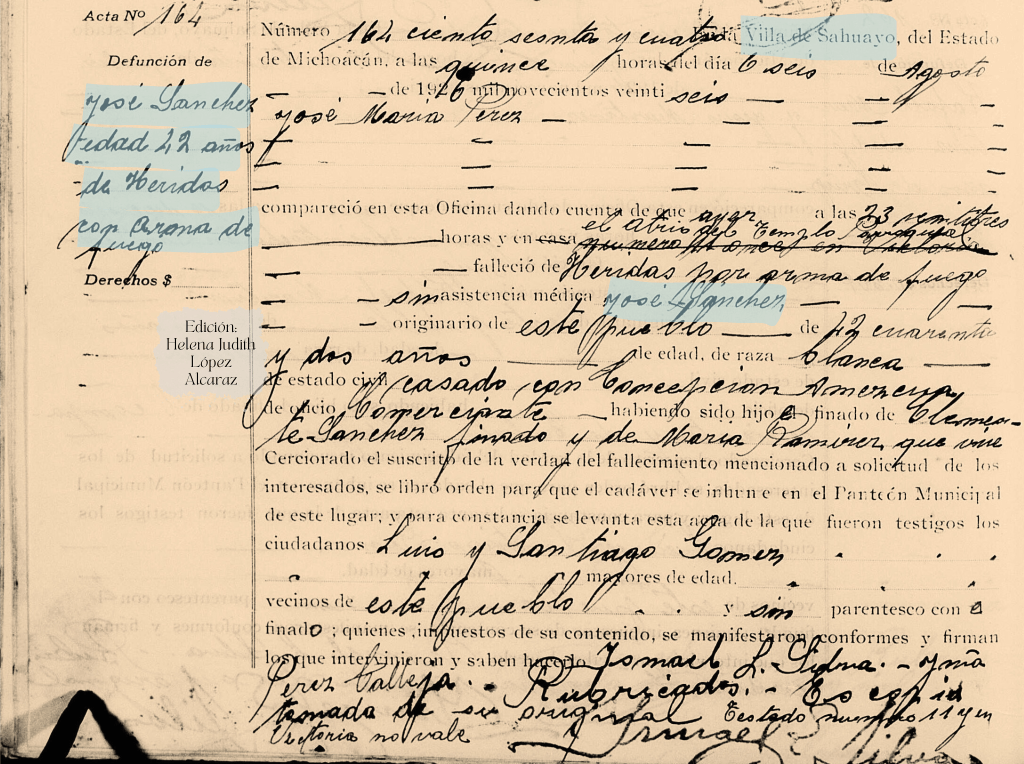 Acta Nº 164
Defunción de
José Sanchez
edad 42 años
de Heridas
con arma de
fuego
Derechos $
Edición:
Helena Judith
López
Alcaraz
Número 164 ciento sesnta y cuatro En la Villa de Sahuayo, del Estado
de Michoacán, a las quince horas del día 6 seis de Agosto
de 1926 mil novecientos veinti seis
José María Perez
compareció en esta Oficina dando cuenta de que ayer a las 23 veintitres
el atrio del Templo Parroquial
horas y en casa numero 11 once en Victoria
falleció de Heridas por arma de fuego
sin asistencia médica José Sanchez
originario de este pueblo de 42 cuarenta
y dos años de edad, de raza blanca
de estado civil casado con Concepcion Amezcua
de oficio Comerciante habiendo sido hijo e finado de Clemen-
te Sanchez finado y de María Ramirez que vive
Cerciorado el suscrito de la verdad del fallecimiento mencionado a solicitud de los
interesados, se libró orden para que el cadáver se inhume en el Panteón Municipal
de este lugar; y para constancia se levanta esta acta de la que fueron testigos los
ciudadanos Luis y Santiago Gomez
mayores de edad.
vecinos de este pueblo y sin parentesco con e
finado; quienes impuestos de su contenido, se manifestaron conformes y firman
los que intervinieron y saben hacerlo Ismael L. Silva. - J. mª
Perez Calleja. - Rubricados. - Es copia
tomada de su original Testado numero 11 y en
Victoria no vale
Ismael
Silva